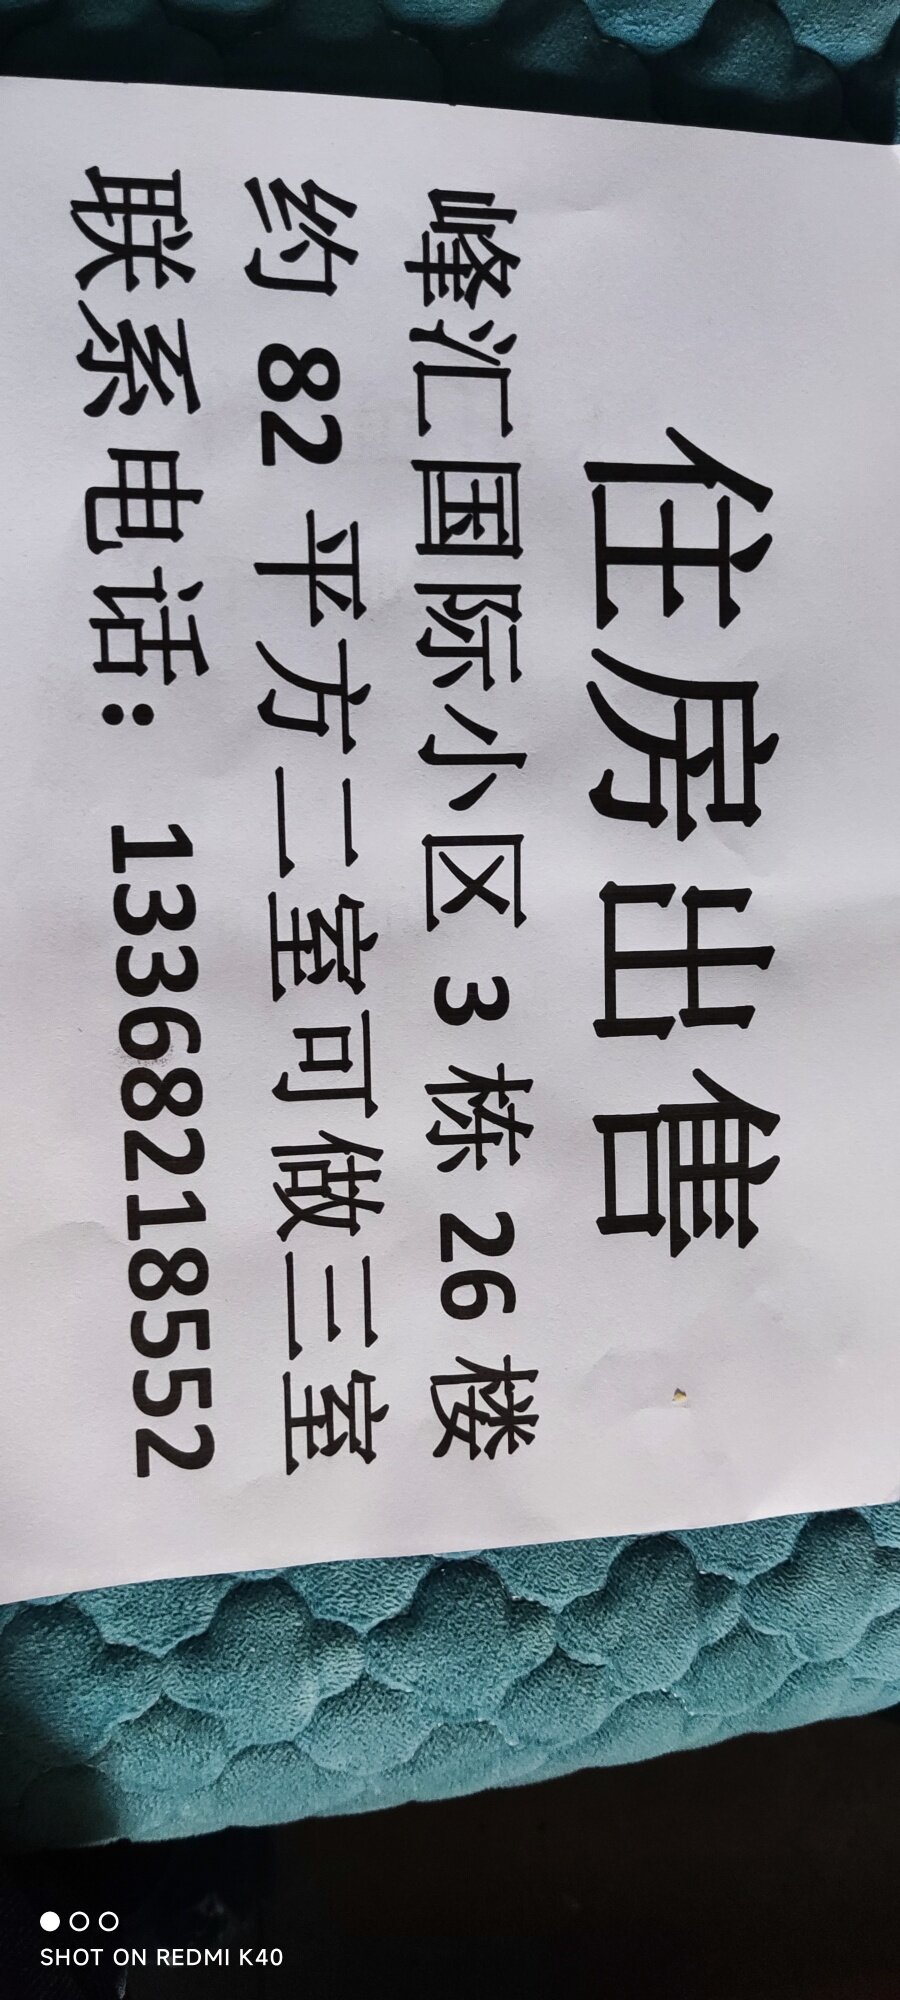 住房出售
峰汇国际小区 3 栋 26 楼
约 82 平方二室可做三室
联系电话： 13368218552
SHOT ON REDMI K40